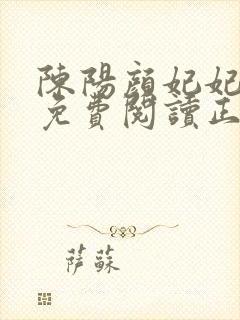 陳陽顔妃妃
免費閱讀正
萨蘇